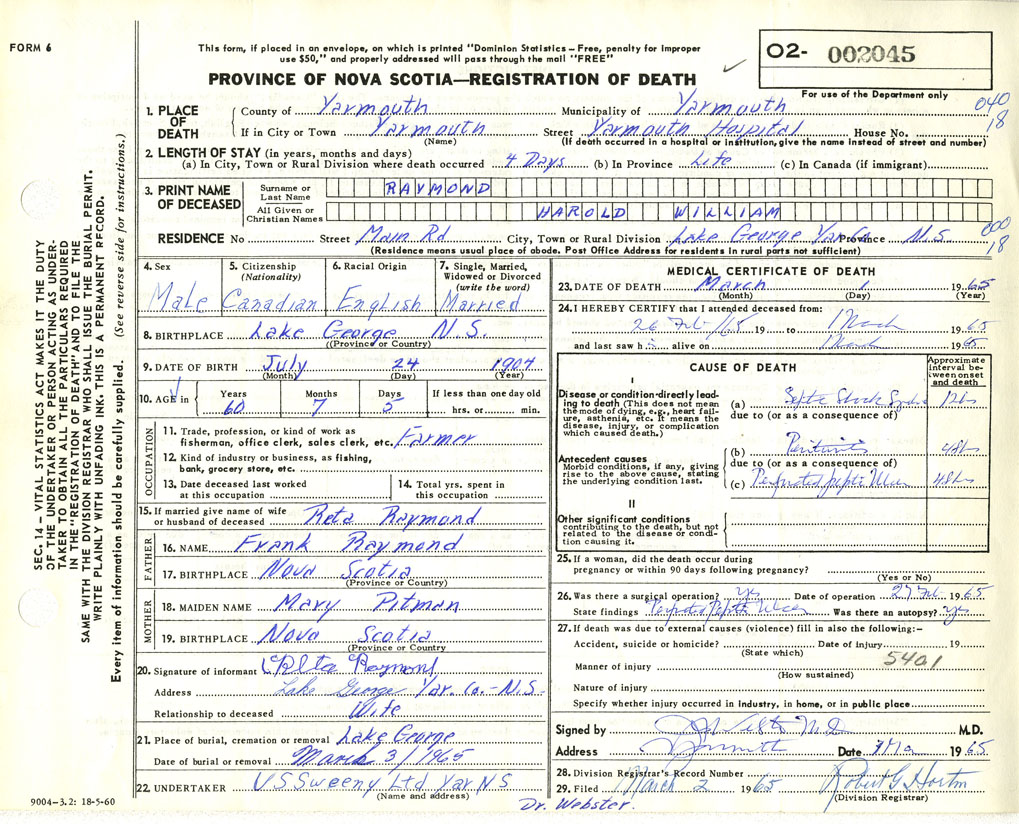 FORM 6
This form, if placed in an envelope, on which is printed "Dominion Statistics – Free, penalty for improper
use $50," and properly addressed will pass through the mail "FREE"
PROVINCE OF NOVA SCOTIA—REGISTRATION OF DEATH
O2- 002045
For use of the Department only
040
18
SEC. 14 – VITAL STATISTICS ACT MAKES IT THE DUTY
OF THE UNDERTAKER OR PERSON ACTING AS UNDER-
TAKER TO OBTAIN ALL THE PARTICULARS REQUIRED
IN THE "REGISTRATION OF DEATH" AND TO FILE THE
SAME WITH THE DIVISION REGISTRAR WHO SHALL ISSUE THE BURIAL PERMIT.
WRITE PLAINLY WITH UNFADING INK. THIS IS A PERMANENT RECORD.
Every item of information should be carefully supplied. (See reverse side for instructions.)
1. PLACE OF DEATH
County of Yarmouth Municipality of Yarmouth
If in City or Town Yarmouth Street Yarmouth Hospital House No.
(Name) (If death occurred in a hospital or institution, give the name instead of street and number)
2. LENGTH OF STAY (in years, months and days)
(a) In City, Town or Rural Division where death occurred 4 Days (b) In Province Life (c) In Canada (if immigrant)
3. PRINT NAME OF DECEASED
Surname or Last Name RAYMOND
All Given or Christian Names HAROLD WILLIAM
000
18
RESIDENCE No Street Main Rd City, Town or Rural Division Lake George Yar. Co. Province N.S.
(Residence means usual place of abode. Post Office Address for residents in rural parts not sufficient)
4. Sex
Male
5. Citizenship (Nationality)
Canadian
6. Racial Origin
English
7. Single, Married, Widowed or Divorced (write the word)
Married
8. BIRTHPLACE Lake George N.S.
((Province or Country)
9. DATE OF BIRTH July 24 1904
(Month) (Day) (Year)
10. AGE in Years Months Days If less than one day old
60 7 5 hrs. or min.
OCCUPATION
11. Trade, profession, or kind of work as
fisherman, office clerk, sales clerk, etc. Farmer
12. Kind of industry or business, as fishing,
bank, grocery store, etc.
13. Date deceased last worked at this occupation
14. Total yrs. spent in this occupation
15. If married give name of wife
or husband of deceased Reta Raymond
FATHER
16. NAME Frank Raymond
17. BIRTHPLACE Nova Scotia
(Province or Country)
MOTHER
18. MAIDEN NAME Mary Pitman
19. BIRTHPLACE Nova Scotia
(Province or Country
20. Signature of informant Reta Raymond
Address Lake George Yar. Co. - N.S.
Relationship to deceased Wife
21. Place of burial, cremation or removal Lake George
Date of burial or removal March 3/1965
22. UNDERTAKER V S Sweeny Ltd Yar N S
(Name and address)
9004–3.2: 18-5-60
MEDICAL CERTIFICATE OF DEATH
23. DATE OF DEATH March 1 1965
(Month) (Day) (Year)
24. I HEREBY CERTIFY that I attended deceased from:
26 Feb/65 19 to 1 March 1965
and last saw h alive on 1 March 1965
CAUSE OF DEATH
Approximate interval between onset and death
I
Disease or condition directly lead-
ing to death (This does not mean
the mode of dying, e.g., heart fail-
ure, asthenia, etc. It means the
disease, injury, or complication
which caused death.)
(a) Septic Shock 12 hrs
due to (or as a consequence of)
Antecedent causes
Morbid conditions, if any, giving
rise to the above cause, stating
the underlying condition last.
(b) Peritonitis 48 hrs
due to (or as a consequence of)
(c) Perforated peptic Ulcer 48 hrs
II
Other significant conditions
contributing to the death, but not
related to the disease or condi-
tion causing it.
25. If a woman, did the death occur during
pregnancy or within 90 days following pregnancy?
(Yes or No)
26. Was there a surgical operation? yes Date of operation 27 Feb. 1965
State findings Perforated Peptic Ulcer Was there an autopsy? yes
27. If death was due to external causes (violence) fill in also the following:–
Accident, suicide or homicide? Date of injury 19
(State which)
5401
Manner of injury
(How sustained)
Nature of injury
Specify whether injury occurred in industry, in home, or in public place
Signed by M.D. M.D.
Address Yarmouth Date 1965
28. Division Registrar's Record Number
29. Filed March 2 1965 Robert G Horton
(Division Registrar)
Dr. Webster.